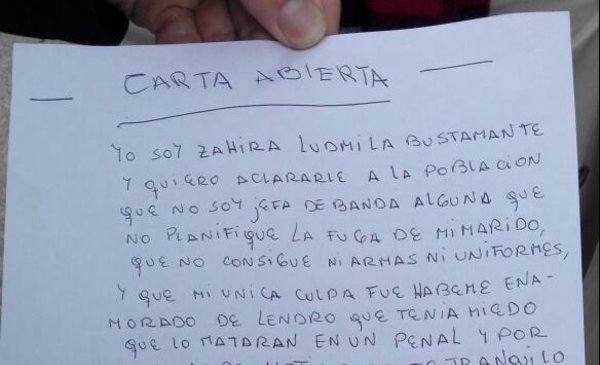 CARTA ABIERTA
YO SOY ZAHIRA LUDMILA BUSTAMANTE
Y QUIERO ACLARARLE A LA POBLACION
QUE NO SOY JEFA DE BANDA ALGUNA QUE
NO PLANIFIQUE LA FUGA DE MI MARIDO,
QUE NO CONSIGUE NI ARMAS NI UNIFORMES,
Y QUE MI UNICA CULPA FUE HABEME ENA-
MORADO DE LENDRO QUE TENIA MIEDO
QUE LO MATARAN EN UN PENAL Y POR
TRANQILO